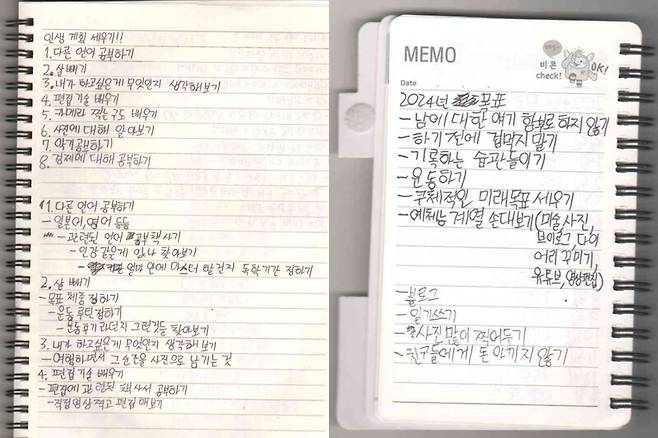 인생 계획 세우기!!
1. 다른 언어 공부하기
2. 살 빼기
3. 내가 하고싶은게 무엇인지 생각해보기
4. 편집 기술 배우기
5. 카메라 찍는 구도 배우기
6. 사진에 대해 알아보기
7. 악기 공부하기
8. 경제에 대해 공부하기
1. 다른 언어 공부하기
- 일본어, 영어 등등
- 관련된 언어 공부 책 사기
- 인강같은게 있나 찾아보기
- 얼마 안에 마스터 할건지 독학기간 정하기
2. 살 빼기
- 목표 체중 정하기
- 운동 루틴 정하기
- 운동기구라던지 그런것들 찾아보기
3. 내가 하고싶은게 무엇인지 생각해보기
- 여행하면서 그 순간을 사진으로 남기는 것
4. 편집 기술 배우기
- 편집에 관련된 책 사서 공부하기
- 직접 영상 찍고 편집해보기
MEMO
비콘
check!
OK!
Date
2024년 목표
- 남에 대한 얘기 함부로 하지 않기
- 하기 전에 겁먹지 말기
- 기록하는 습관들이기
- 운동하기
- 구체적인 미래목표 세우기
- 예체능 계열 손대보기 (미술, 사진,
브이로그, 다이
어리 꾸미기,
유튜브, 영상편집)
- 블로그
- 일기쓰기
- 사진 많이 찍어두기
- 친구들에게 돈 아끼지 않기